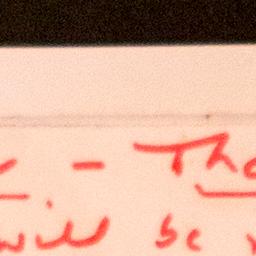 - The
will be